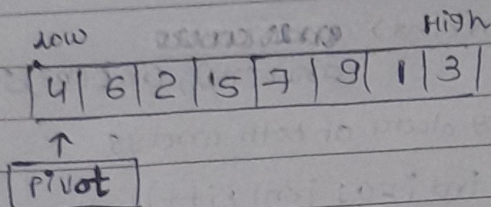 low High
4 6 2 5 7 9 1 3
↑
Pivot